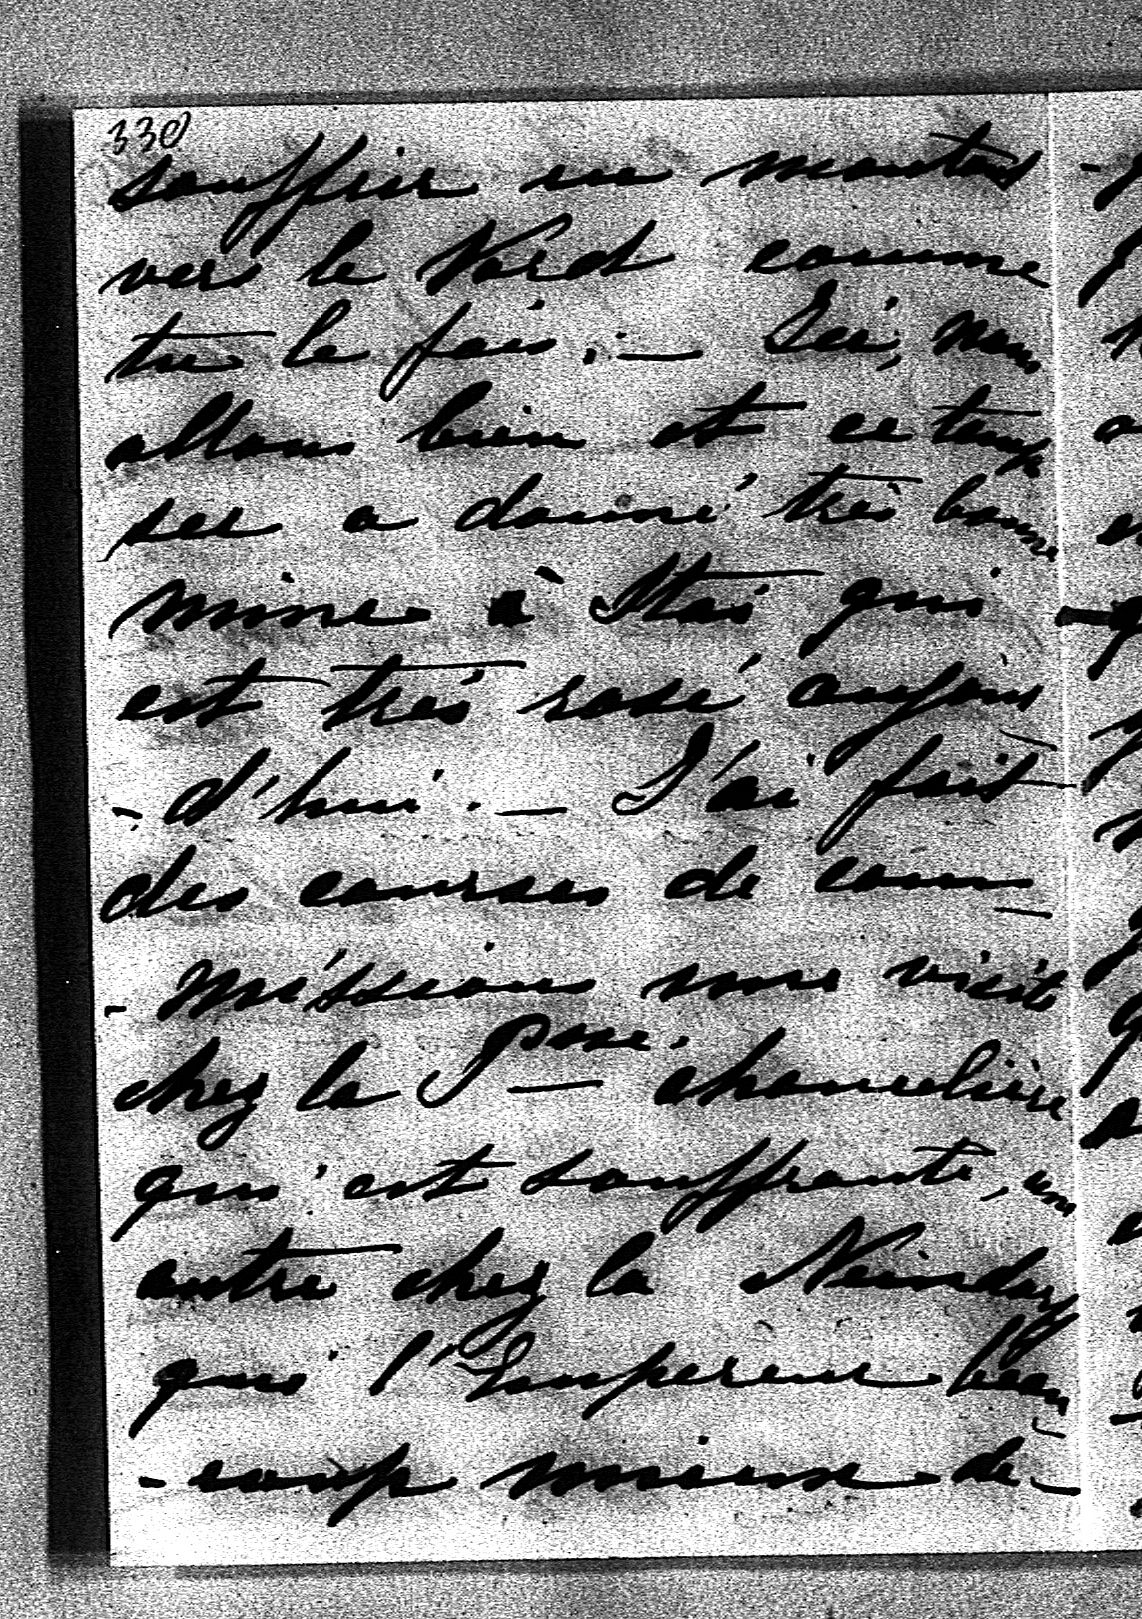 330
souffrir en montant
vers le Nord comme
tu le fais. — Ici, nous
allons bien et ce temps
sec a donné très bonne
mine à Staï qui
est très rosé aujour
- d'hui. — J'ai fait
des courses de com-
- missions une visite
chez la Psse. chancelière
qui est souffrante, une
autre chez la
qui l'Empereur beau-
- coup mieux de